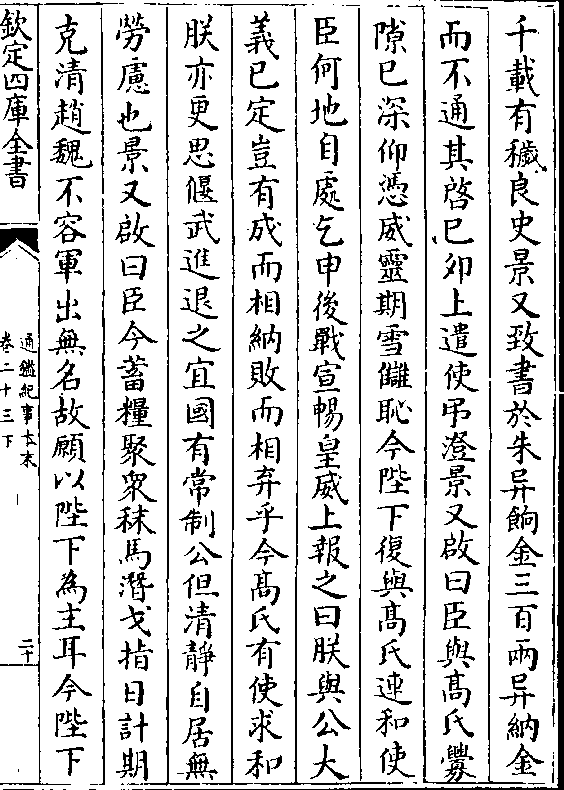 千載有穢良史景又致書於朱异餉金三百兩异納金
而不通其啓己卯上遣使弔澄景又啟曰臣與髙氏釁
隙已深仰憑威靈期雪讎恥今陛下復與髙氏連和使
臣何地自處乞申後戰宣暢皇威上報之曰朕與公大
義已定豈有成而相納敗而相弃乎今髙氏有使求和
朕亦更思偃武進退之宜國有常制公但清靜自居無
勞慮也景又啟曰臣今蓄糧聚衆秣馬潛戈指日計期
克清趙魏不容軍出無名故願以陛下為主耳今陛下
欽定四庫全書
通鑑紀事本末
卷二十三下
二十